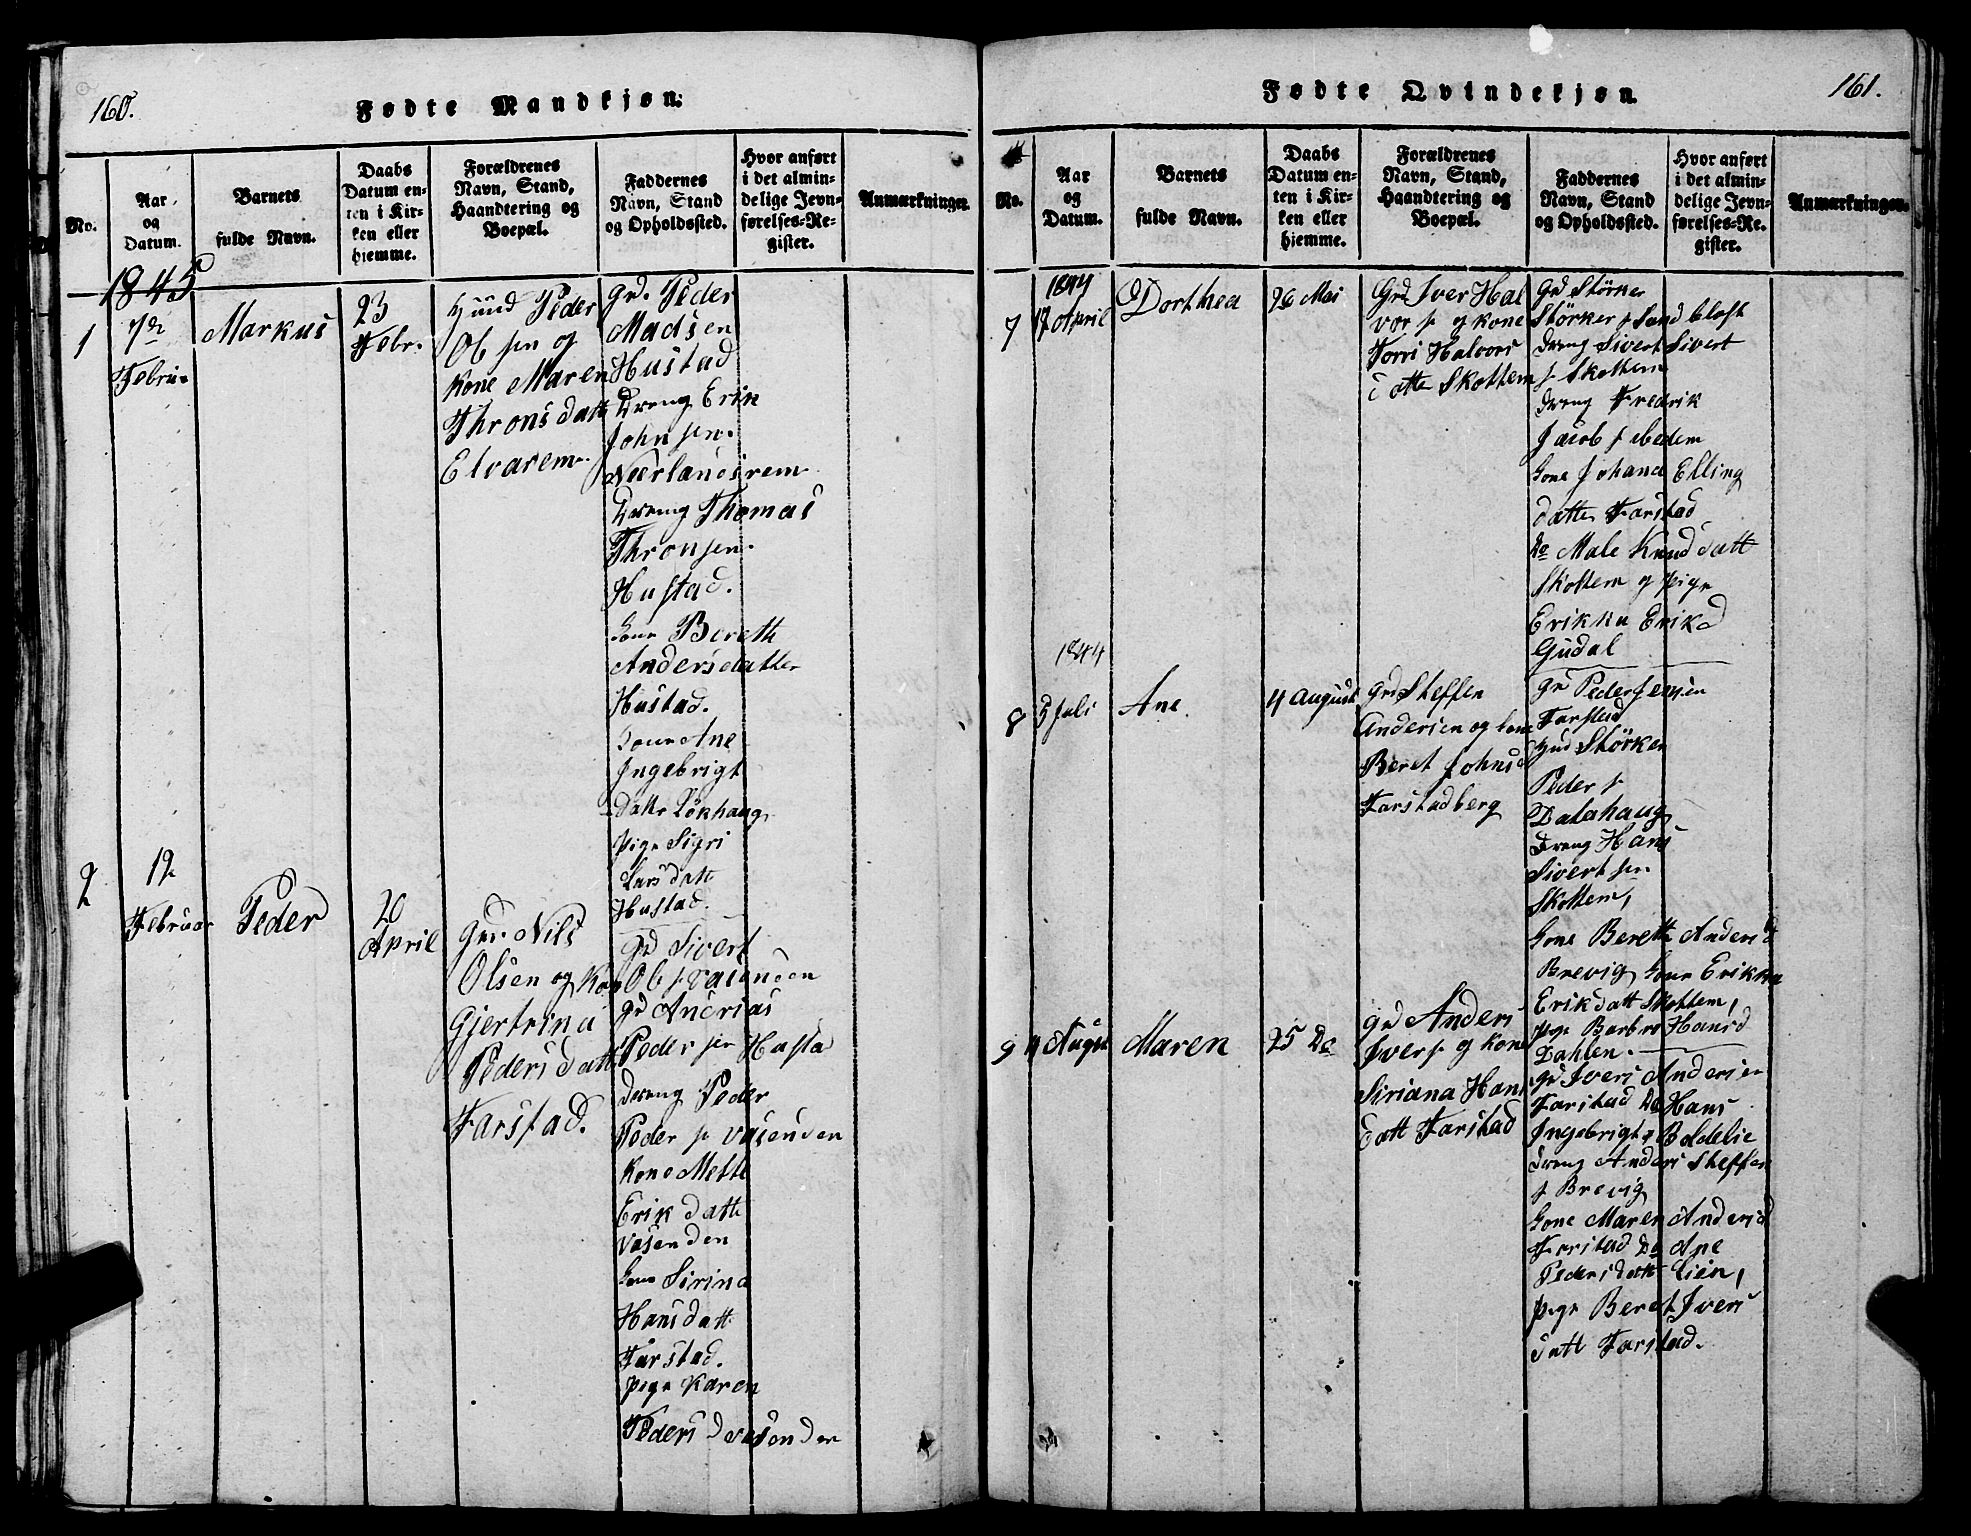 160.
Fødte Mandkjøn.
No.
Aar
og
Datum.
Barnets
fulde Navn.
Daabs
Datum en-
ten i Kir-
ken eller
hjemme.
Forældrenes
Navn, Stand,
Haandtering og
Boepæl.
Faddernes
Navn, Stand
og Opholdssted.
Hvor anført
i det almin-
delige Jevn-
førelses-Re-
gister.
Anmærkninger.
1845
1
7de
Febru.
Markus
23
Febr.
Huusmd Peder
Ol sen og
Kone Maren
Thronsdatt
Elvarem
Gd. Peder
Madsen
Hustad
Dreng Erik
John sen.
Nærlandsrem
Dreng Thomas
Thronsen.
Hustad.
Kone Bereth
Andersdatter
Hustad.
Kone Ane
Ingebrigt
Datter Løkhaug,
Pige Sigri
Lars datt
Hustad.
2
12
Februar
Peder
20
April
Gdr. Nils
Olsen og Kon
Gjertrina
Peders datt
Farstad.
Gd Sivert
Ol s. Vasenden
Gd Andrias
Peder sen Hasta
Dreng Peder
Peder s. Vasenden
Kone Mette
Erik datt
Vasenden
Kone Sirina
Hans datt
Farstad.
Pige Karen
Peders d Vasenden
161.
Fødte Qvindekjøn.
No.
Aar
og
Datum.
Barnets
fulde Navn.
Daabs
Datum en-
ten i Kir-
ken eller
hjemme.
Forældrenes
Navn, Stand,
Haandtering og
Boepæl.
Faddernes
Navn, Stand
og Opholdssted.
Hvor anført
i det almin-
delige Jevn-
førelses-Re-
gister.
Anmærkninger.
1844
7
17 April
Dorthea
26 Mai
Gd Iver Hal
vor s. og Kone
Torri Halvors
datte Skottem
Gd Størker
Størker s Sandblost
Dreng Sivert Sivert
s Skottem
Dreng Fredrik
Jacob s
Kone Johana Elling
datte Farstad
Do Male Knud datt
Skottem og Pige
Erikka Erik d
Gudal
1844
8
5 Juli
Ane
4 August
Gd Steffen
Andersen og Kone
Beret Johns d
Farstadberg
Gd Peder Jensen
Farstad
Hmd Størker
Peder s
Dalahaug
Dreng Hans
Sivert sen
Skottem,
Kone Bereth Anders d
Brevig Kone Erikka
Erik datt Skottem,
Pige Barbro Hans d
Dahlen.
9
4 Augst
Maren
25 Do
Gd Anders
Ivers s. og Kone
Siriana Hans
datt Farstad
Gd Ivers Andersen
Farstad Do Hans
Ingebrigt s Boldelie
Dreng Anders Steffen
s Brevig
Kone Maren Anders d
Farstad Do Ane
Peders datt Lien,
Pige Beret Ivers
datt Farstad.